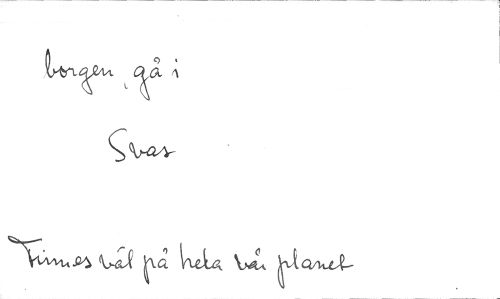 borgen, gå i
Svas
Finnes väl på hela vår planet